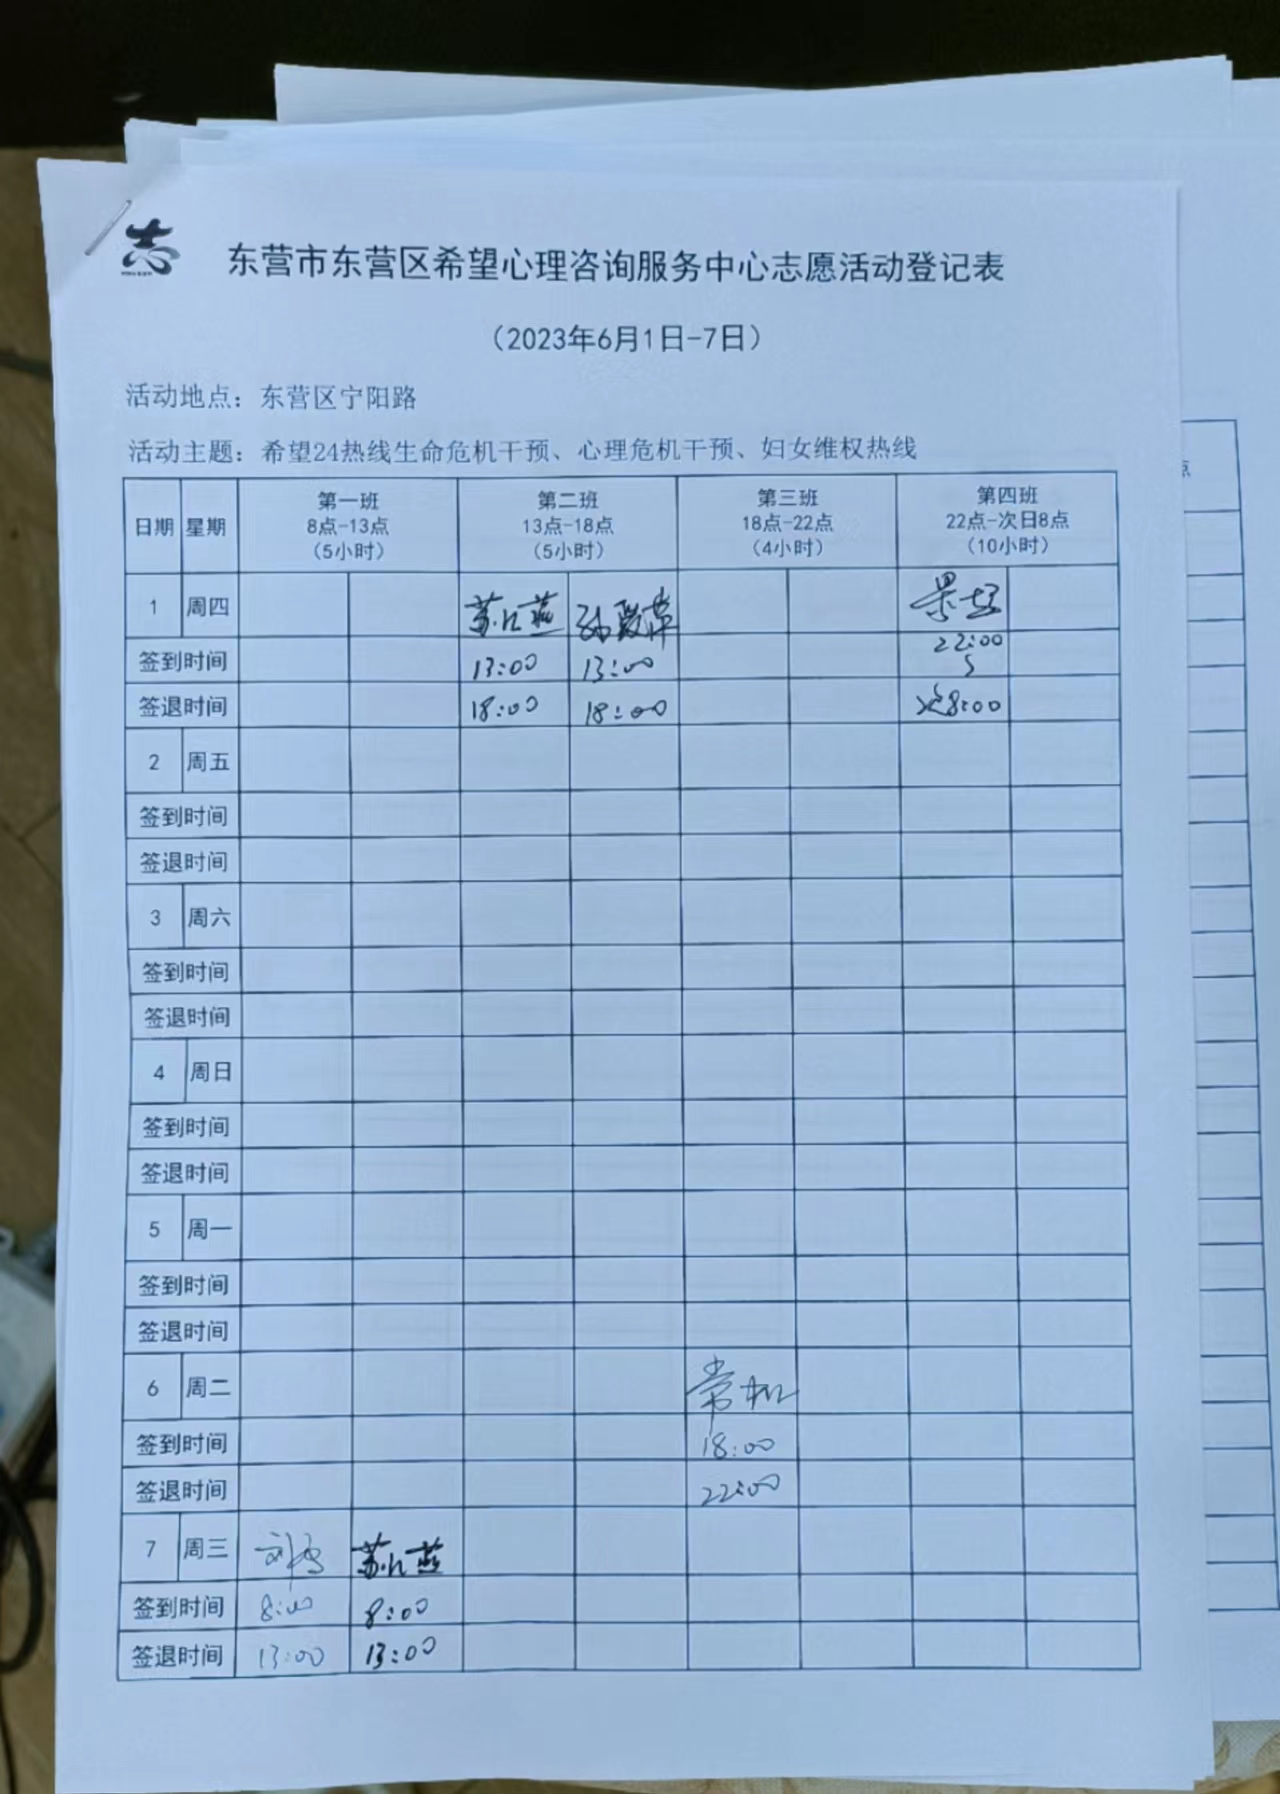 志
东营市东营区希望心理咨询服务中心志愿活动登记表
（2023年6月1日-7日）
活动地点：东营区宁阳路
活动主题：希望24热线生命危机干预、心理危机干预、妇女维权热线
日期 星期 第一班 8点-13点 （5小时） 第二班 13点-18点 （5小时） 第三班 18点-22点 （4小时） 第四班 22点-次日8点 （10小时）
1 周四
签到时间 13:00 13:00 22:00
签退时间 18:00 18:00 次8:00
2 周五
签到时间
签退时间
3 周六
签到时间
签退时间
4 周日
签到时间
签退时间
5 周一
签到时间
签退时间
6 周二
签到时间 18:00
签退时间 22:00
7 周三
签到时间 8:00 8:00
签退时间 13:00 13:00
点